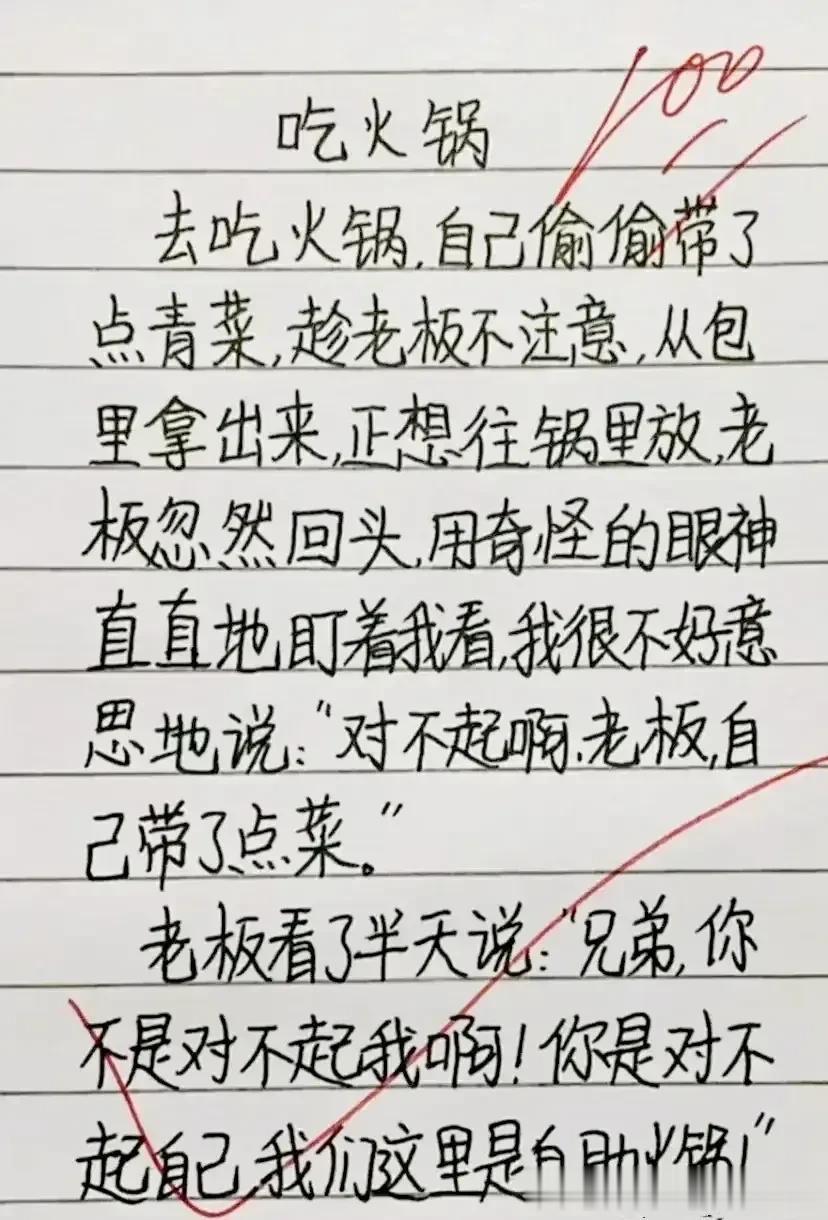 100
吃火锅
去吃火锅,自己偷偷带了
点青菜,趁老板不注意,从包
里拿出来,正想往锅里放,老
板忽然回头,用奇怪的眼神
直直地盯着我看,我很不好意
思地说:“对不起啊,老板,自
己带了点菜。”
老板看了半天说:“兄弟,你
不是对不起我啊!你是对不
起自己,我们这里是自助火锅!”